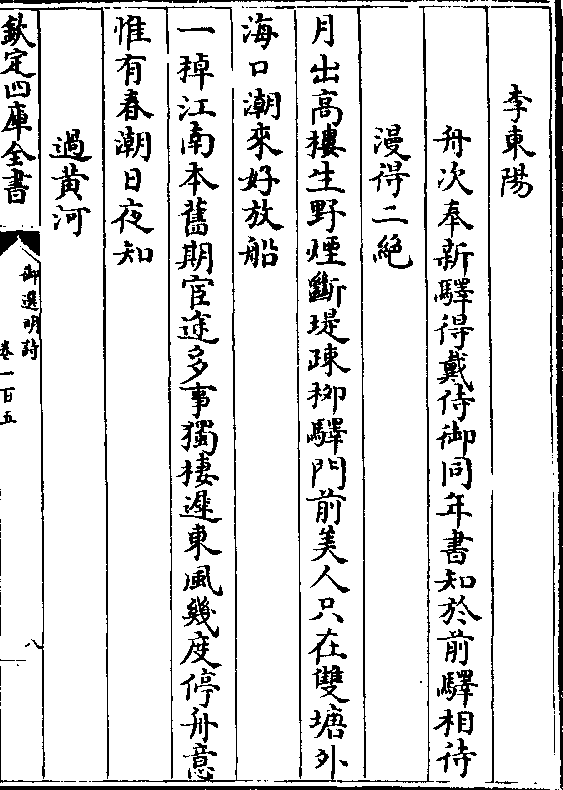 李東陽
舟次奉新驛得戴侍御同年書知於前驛相待
漫得二絶
月出高樓生野煙斷堤疎栁驛門前美人只在雙塘外
海口潮來好放船
一棹江南本舊期宦途多事獨棲遲東風幾度停舟意
惟有春潮日夜知
過黄河
欽定四庫全書
御選明詩
卷一百五
八